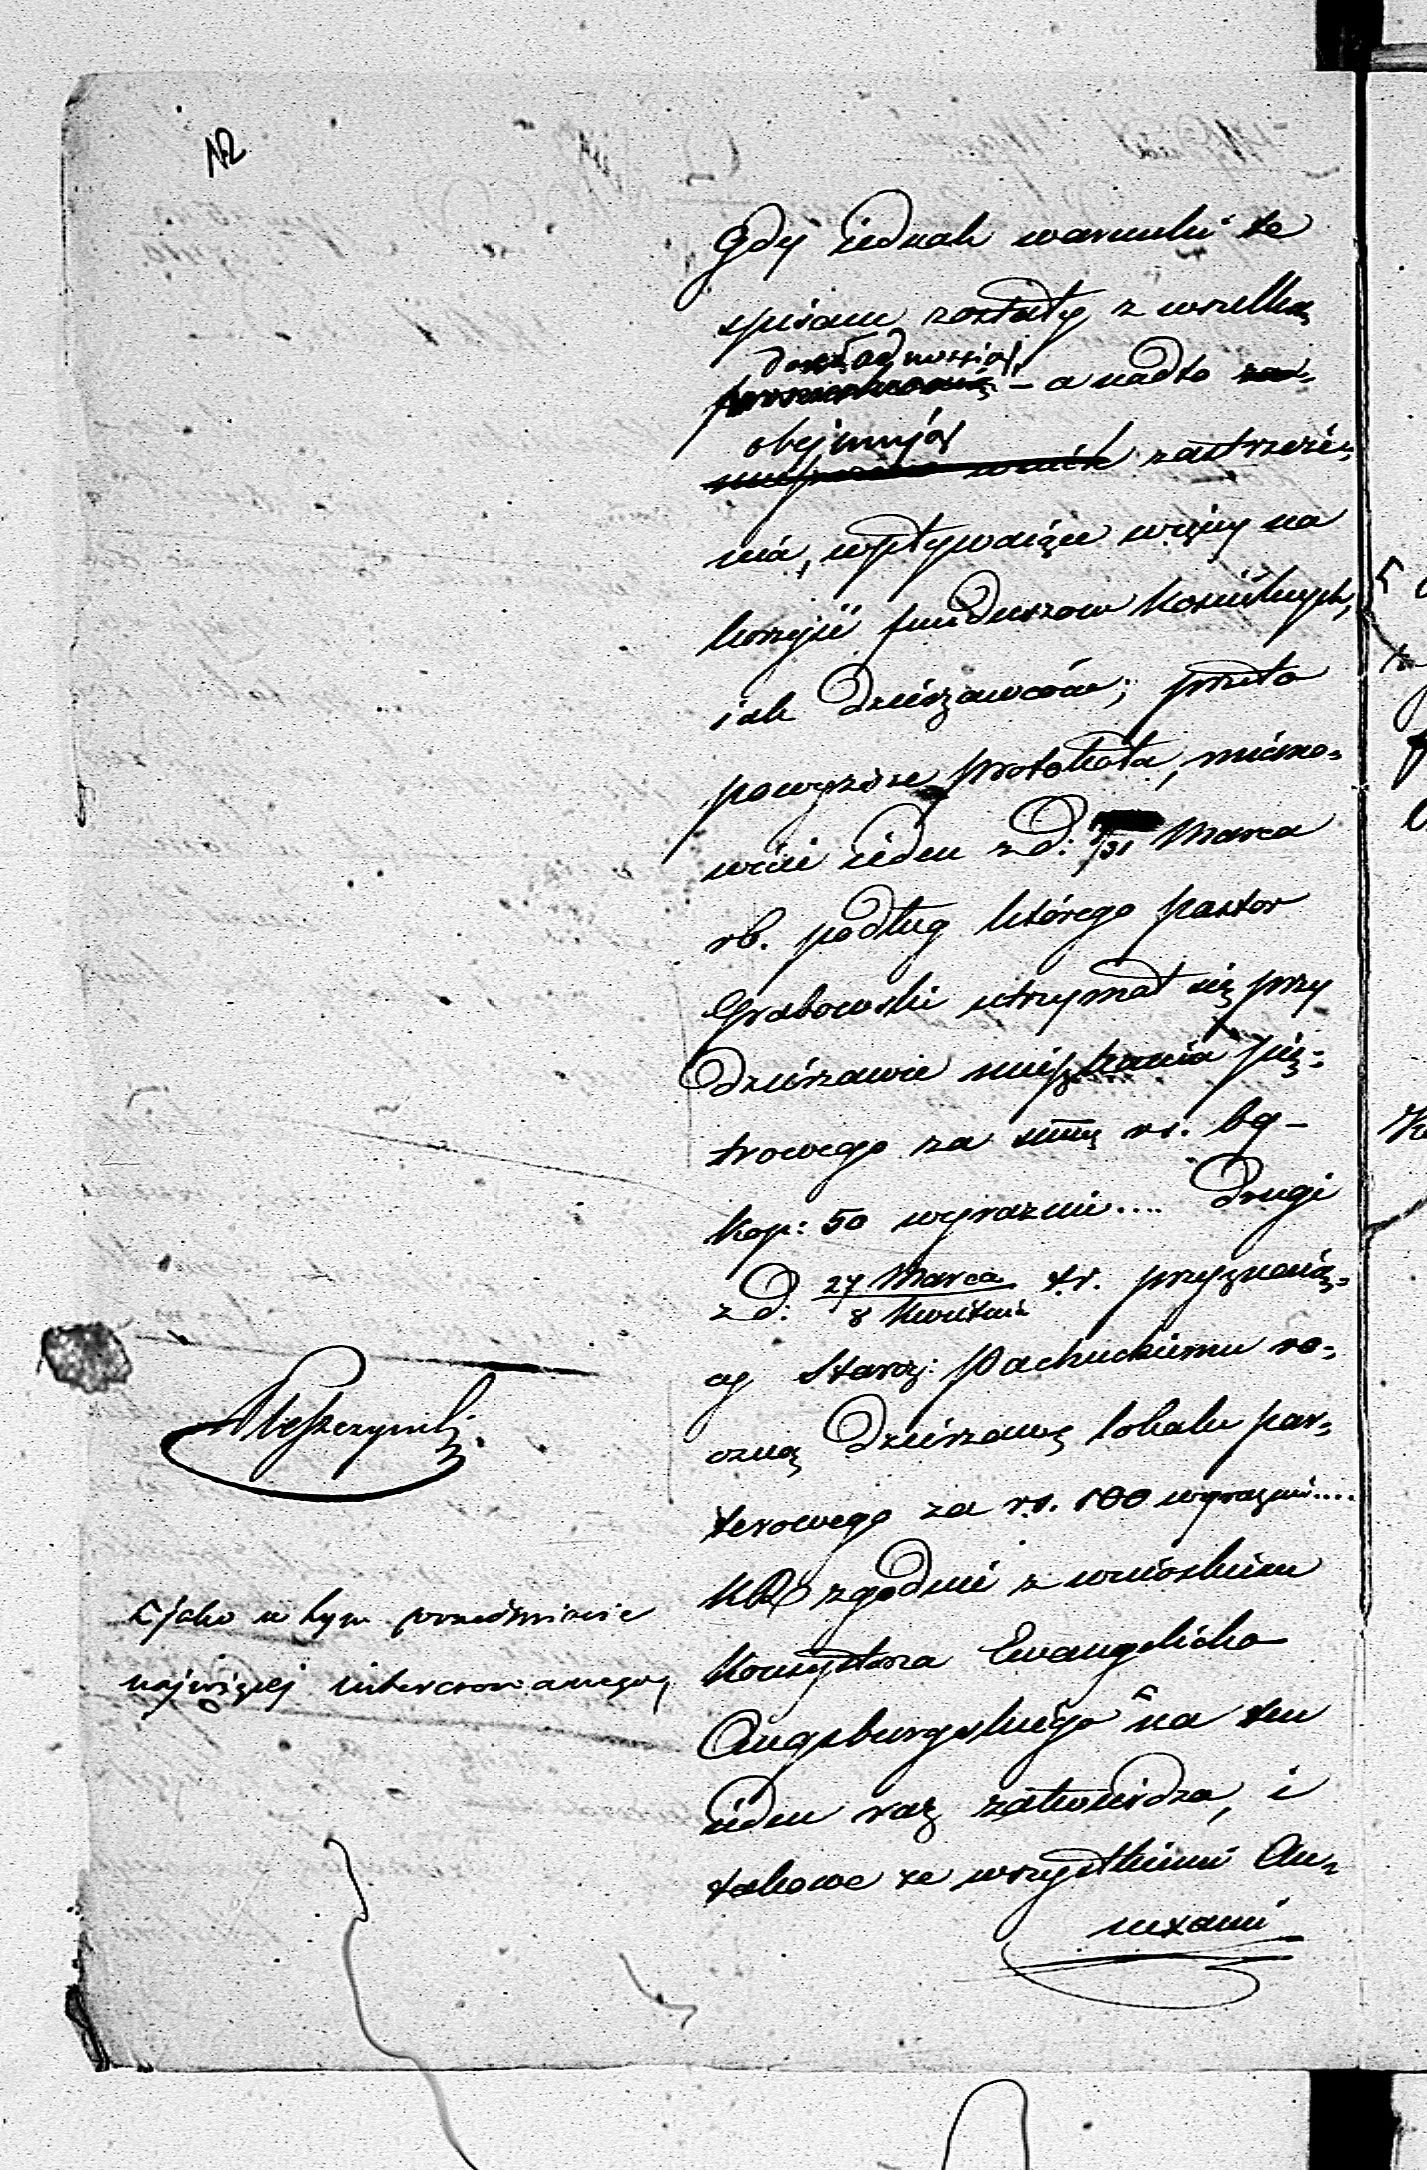 Gdy iednak warunki te
spisane zostały z wszelką
dokładnością, – a nadto
obejmują zastrzeże-
nia, wpływaiące więcéy na
korzyść funduszow Kościelnych,
iak dzierżawców; przeto
powyższe protokoła, miano-
wicie ieden z d: /31 Marca
rb. podług którego pastor
Grabowski utrzymał się przy
dzierżawie mieszkania pię-
trowego za summę rs. 69 –
kop: 50 wyraznie.... drugi
z d: 27 Marca / 8 Kwietnia t.r. przyznaią-
cy Starz: Pachuckiemu ro-
czną dzierżawę lokalu par-
terowego za r.s. 100 wyraznie....
KR zgodnie z wnioskiem
Konsystorza Ewangelicko
Augsburgskiégo na ten
ieden raz zatwierdza, i
takowe ze wszystkiemi An-
nexami
jako w tym przedmiocie
najwięcej interesowanego,